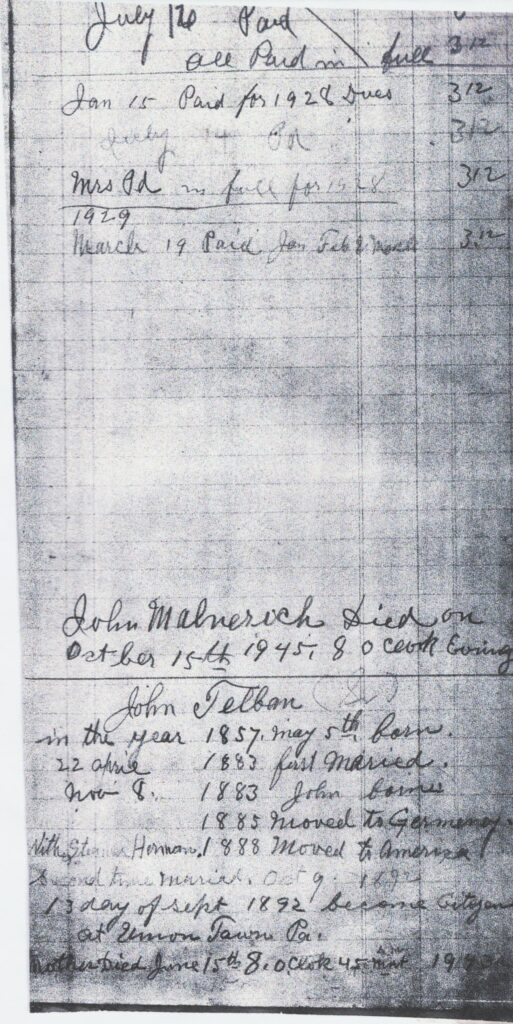 July 16 Paid
all Paid in full 3 12
Jan 15 Paid for 1928 Dues 3 12
July 14 Pd 3 12
Mrs Pd in full for 1928 3 12
1929
March 19 Paid Jan Feb & 3.12
John Malnerich Died on
Octber 15th 1945, 8 O Clook Evning
John Telban
in the year 1857. may 5th born.
22 aprile 1883 first Maried.
Nov 8. 1883 John borne
1885 Moved to Germeney.
With Herman. 1888 Moved to America
Second time Maried. Oct 9. 1892
13 day of Sept 1892 become Citysen
at Union Tawn Pa.
Mother Died June 15th 8. O Clok 45 mint